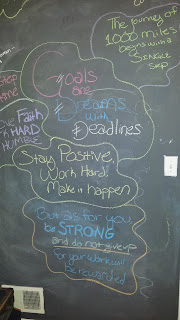 The journey of
1000 miles
begins with a
single
step
Goals are
#Dreams
with
#Deadlines
Faith
HARD
HUMBLE
Stay Positive,
Work Hard,
Make it happen
But as for you
be STRONG
and do not give up
for your work will
be rewarded